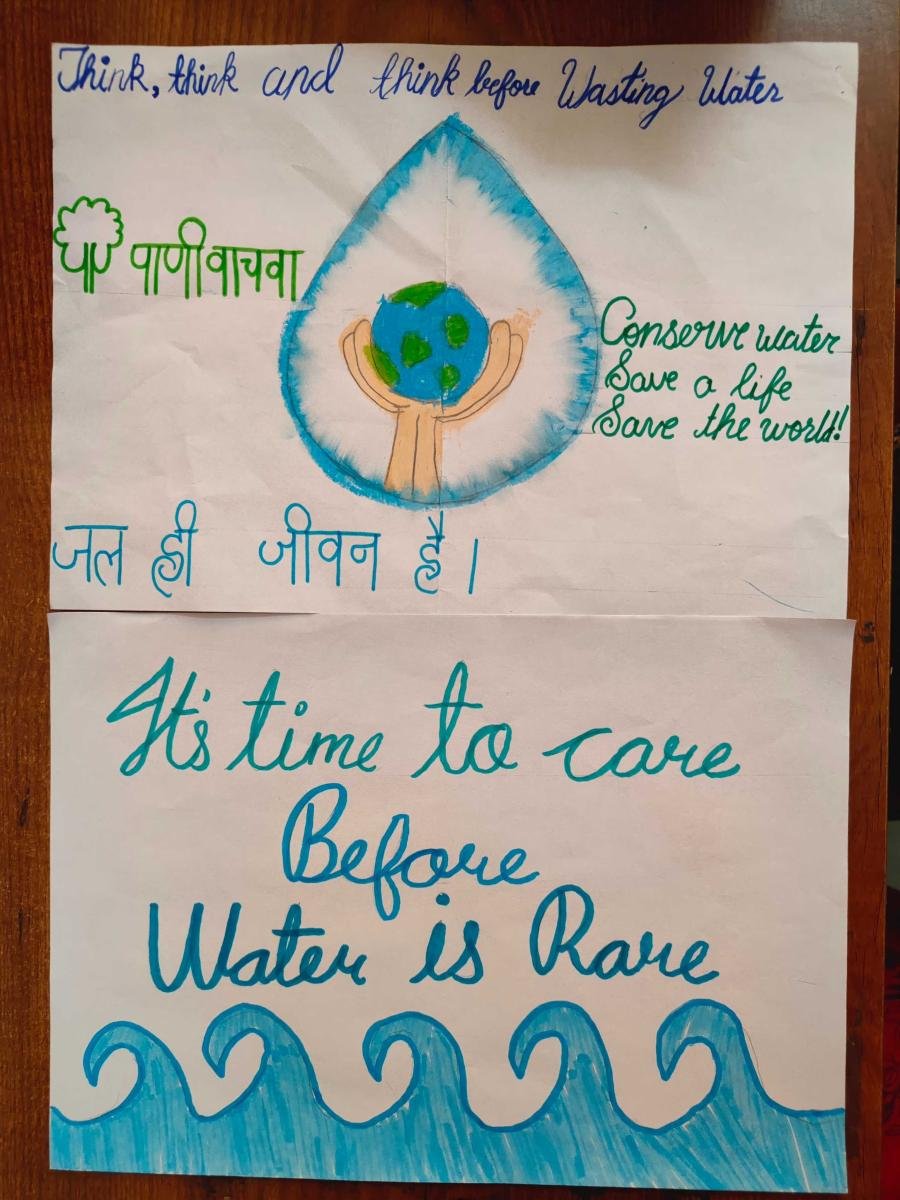 Think, think and think before Wasting Water
पाणी वाचवा
Conserve water
Save a life
Save the world!
जल ही जीवन है।
It's time to care
Before
Water is Rare